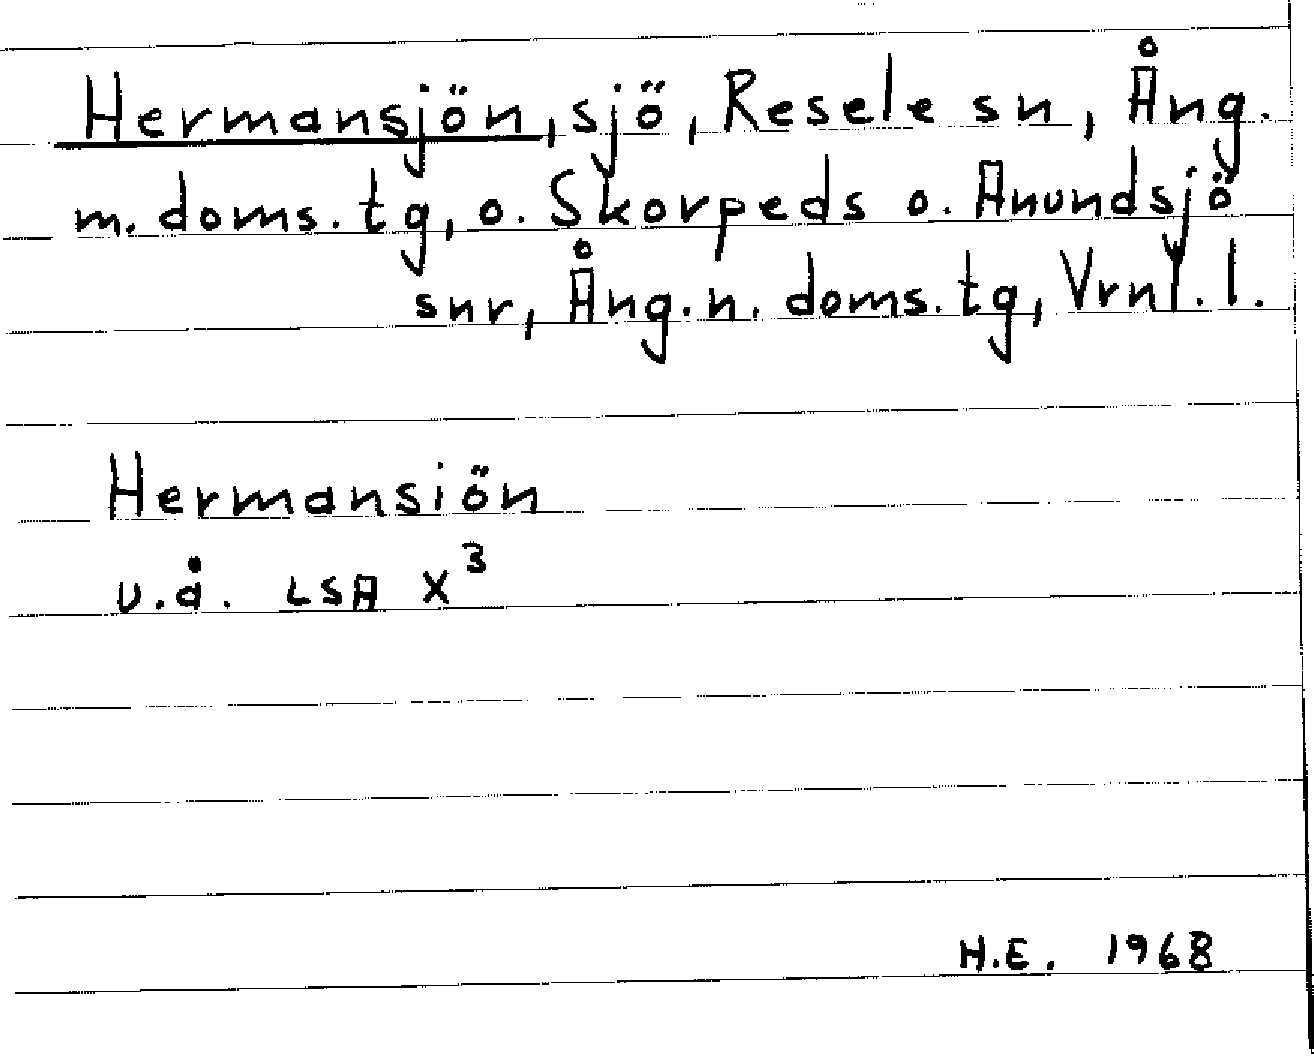 Hermansjön, sjö, Resele sn, Ång.
m. doms. tg, o. Skorpeds o. Anundsjö
snr, Ång. n. doms. tg, Vrnl. l.
Hermansiön
u.å. LSA X³
H.E. 1968